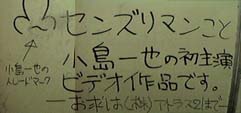 センズリマンこと
小島一也の初主演
ビデオ作品です。
お求は(株)アトラス21まで
小島一也の
トレードマーク